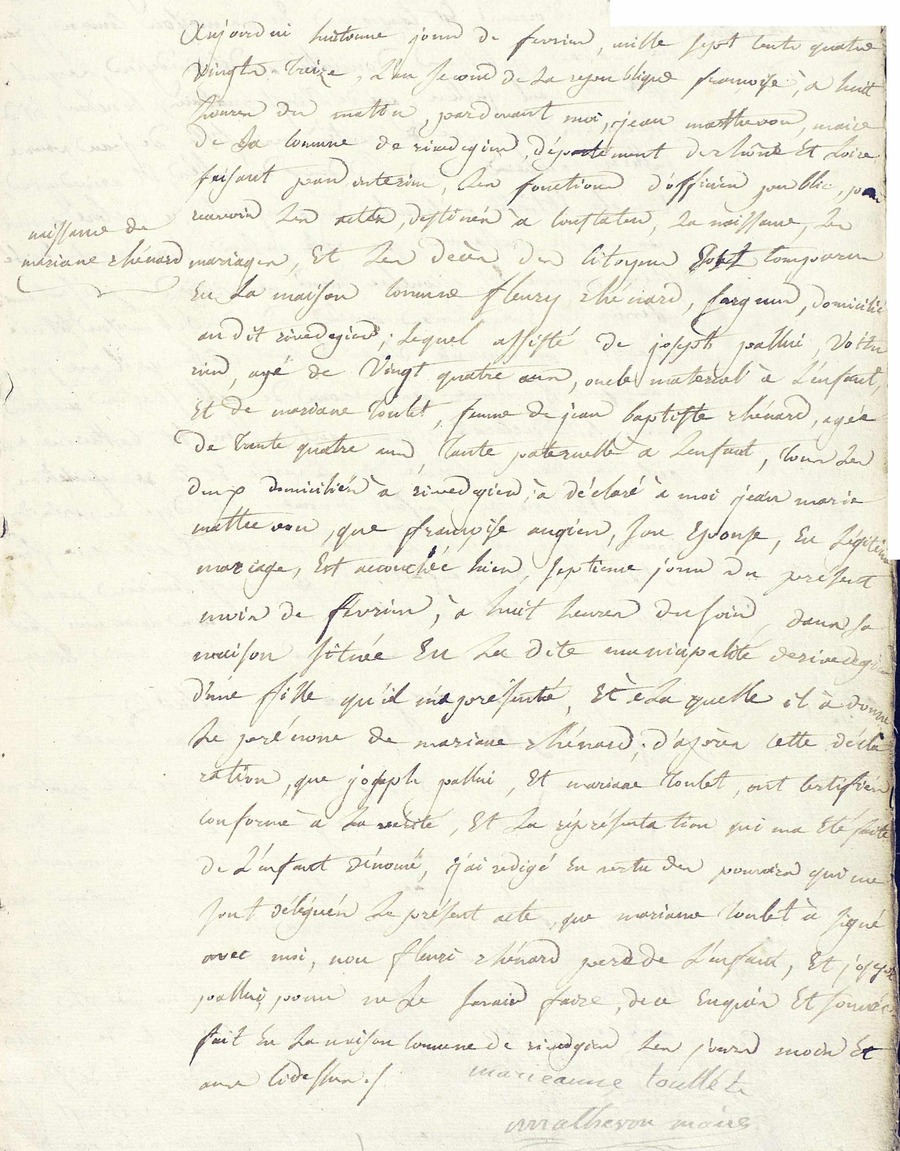 Aujourdui huitieme jour de fevrier, mille sept cents quatre
vingts treize, L'an second de La republique françoise, à huit
heures du matin, pardevant moi, jean mathevon, maire
de La comune de rivedegier, département de rhône Et Loire
faisant pour interim, Les fonctions d'officier public, pour
recevoir Les actes, destinés à constater, La naissance, Les
naissance de
mariane chénard
mariages, Et Les décès des Citoyens Est comparu
En La maison Comune fleury chénard, domicilié
audit rivedegier; Lequel assisté de joseph pallui, Voitu
rier, agé de Vingt quatre ans, oncle maternel à L'enfant,
Et de mariane toulet, femme de jean baptiste chénard, agée
de trente quatre ans tante paternelle à L'enfant, tous Les
deux domiciliés à rivedegier, à déclaré à moi jean marie
mathevon, que françoise augier, Son Epouse, En Légitime
mariage, Est accouchée hier, Septieme jour du présent
mois de février, à huit heures du soir, dans Sa
maison Située En La dite municipalité derivedegier
d'une fille qu'il m'a présenté, Et à La quelle il à donné
Le prénoms de mariane chénard; d'après cette décla
ration, que joseph pallui, Et mariane toulet, ont certifiés
conforme à La verité, Et La représentation qui ma Eté faite
de L'enfant dénomé, j'ai redigé En vertu des pouvoirs qui me
Sont délégués Le présent acte, que mariane toulet à signé
avec moi, non fleuri chénard pere de L'enfant, Et joseph
pallui, pour ne Le Savoir faire, de ce Enquis Et
fait En La maison Comune de rivedegier Les jours mois Et
ans Cidessus./
marieanne toullet
mathevon maire